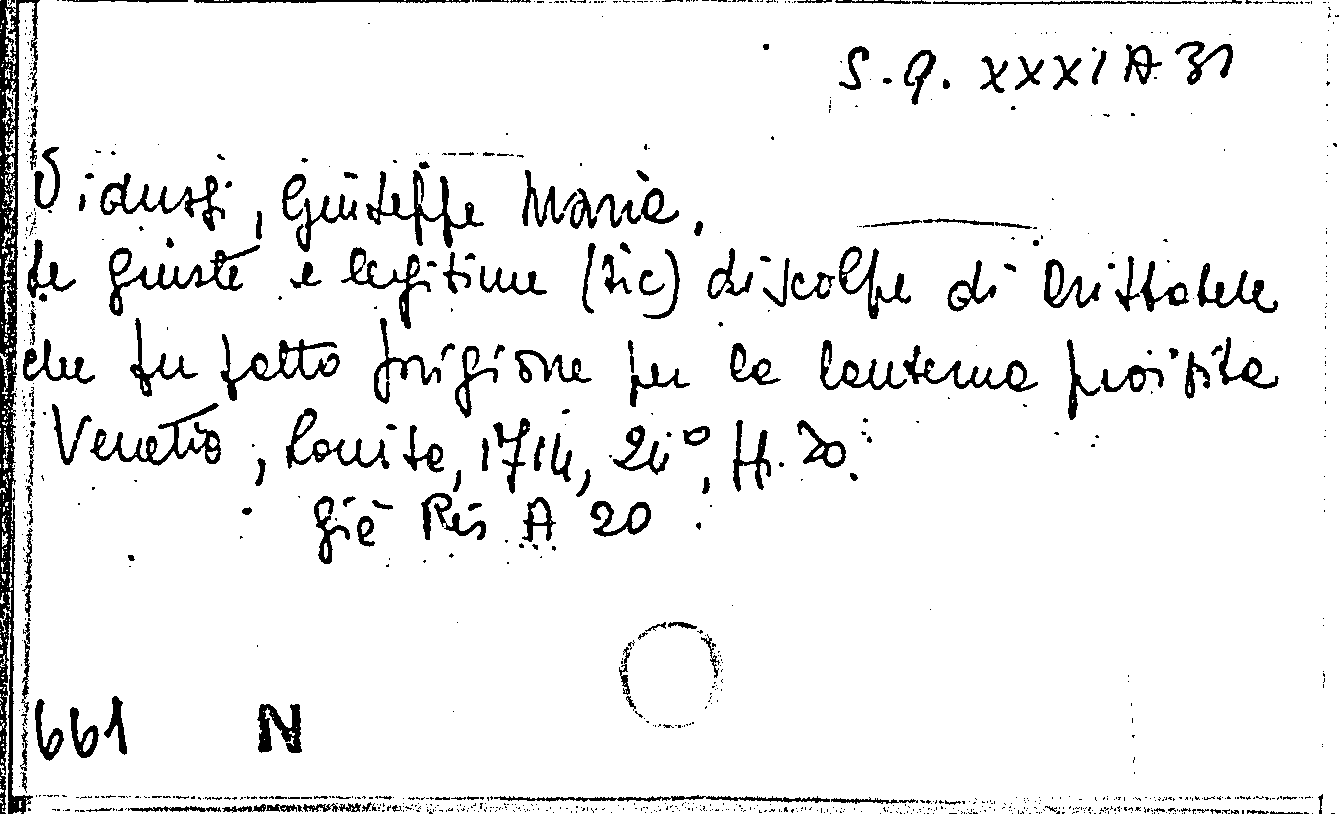 S.Q. XXXI A 31
Vidussi, Giuseppe Maria.
Le giuste e legitime (sic) discolpe di Aristotele
che fu fatto prigione per la lanterna proibita
Venetia, Lovisa, 1714, 24°, ff. 20.
già Ris A 20
661 N